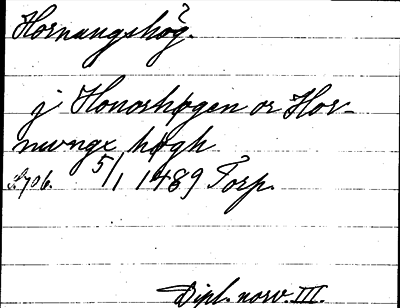 Hornaugshög.
j Honorhøgen or Hor-
nwngx høgh
S. 706. 5/1 1489 Torp.
Dipl. norv. III.